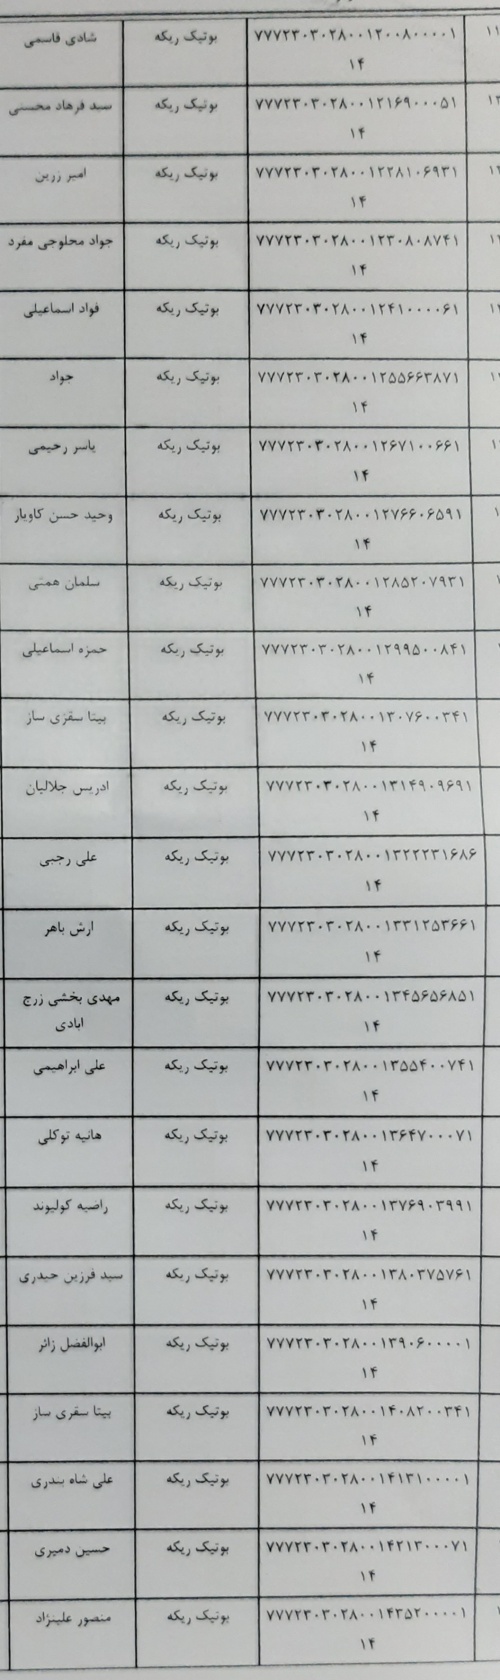 ۷۷۷۲۳۰۳۰۲۸۰۰۱۲۰۰۸۰۰۰۰۱ بوتیک ریکه شادی قاسمی
۱۴
۷۷۷۲۳۰۳۰۲۸۰۰۱۲۱۶۹۰۰۰۵۱ بوتیک ریکه سید فرهاد محسنی
۱۴
۷۷۷۲۳۰۳۰۲۸۰۰۱۲۲۸۱۰۶۹۳۱ بوتیک ریکه امیر زرین
۱۴
۷۷۷۲۳۰۳۰۲۸۰۰۱۲۳۰۸۰۸۷۴۱ بوتیک ریکه جواد محلوجی مفرد
۱۴
۷۷۷۲۳۰۳۰۲۸۰۰۱۲۴۱۰۰۰۰۶۱ بوتیک ریکه فواد اسماعیلی
۱۴
۷۷۷۲۳۰۳۰۲۸۰۰۱۲۵۵۶۶۳۸۷۱ بوتیک ریکه جواد
۱۴
۷۷۷۲۳۰۳۰۲۸۰۰۱۲۶۷۱۰۰۶۶۱ بوتیک ریکه یاسر رحیمی
۱۴
۷۷۷۲۳۰۳۰۲۸۰۰۱۲۷۶۶۰۶۵۹۱ بوتیک ریکه وحید حسن کاویار
۱۴
۷۷۷۲۳۰۳۰۲۸۰۰۱۲۸۵۲۰۷۹۳۱ بوتیک ریکه سلمان همتی
۱۴
۷۷۷۲۳۰۳۰۲۸۰۰۱۲۹۹۵۰۰۸۴۱ بوتیک ریکه حمزه اسماعیلی
۱۴
۷۷۷۲۳۰۳۰۲۸۰۰۱۳۰۷۶۰۰۳۴۱ بوتیک ریکه بیتا سقزی ساز
۱۴
۷۷۷۲۳۰۳۰۲۸۰۰۱۳۱۴۹۰۹۶۹۱ بوتیک ریکه ادریس جلالیان
۱۴
۷۷۷۲۳۰۳۰۲۸۰۰۱۳۲۲۲۳۱۶۸۶ بوتیک ریکه علی رجبی
۱۴
۷۷۷۲۳۰۳۰۲۸۰۰۱۳۳۱۲۵۳۶۶۱ بوتیک ریکه ارش باهر
۱۴
۷۷۷۲۳۰۳۰۲۸۰۰۱۳۴۵۶۵۶۸۵۱ بوتیک ریکه مهدی بخشی زرج
۱۴ ابادی
۷۷۷۲۳۰۳۰۲۸۰۰۱۳۵۵۴۰۰۷۴۱ بوتیک ریکه علی ابراهیمی
۱۴
۷۷۷۲۳۰۳۰۲۸۰۰۱۳۶۴۷۰۰۰۷۱ بوتیک ریکه هانیه توکلی
۱۴
۷۷۷۲۳۰۳۰۲۸۰۰۱۳۷۶۹۰۳۹۹۱ بوتیک ریکه راضیه کولیوند
۱۴
۷۷۷۲۳۰۳۰۲۸۰۰۱۳۸۰۳۷۵۷۶۱ بوتیک ریکه سید فرزین حیدری
۱۴
۷۷۷۲۳۰۳۰۲۸۰۰۱۳۹۰۶۰۰۰۰۱ بوتیک ریکه ابوالفضل زائر
۱۴
۷۷۷۲۳۰۳۰۲۸۰۰۱۴۰۸۲۰۰۳۴۱ بوتیک ریکه بیتا سقری ساز
۱۴
۷۷۷۲۳۰۳۰۲۸۰۰۱۴۱۳۱۰۰۰۰۱ بوتیک ریکه علی شاه بندری
۱۴
۷۷۷۲۳۰۳۰۲۸۰۰۱۴۲۱۳۰۰۰۷۱ بوتیک ریکه حسین دمیری
۱۴
۷۷۷۲۳۰۳۰۲۸۰۰۱۴۳۵۲۰۰۰۰۱ بوتیک ریکه منصور علینژاد
۱۴